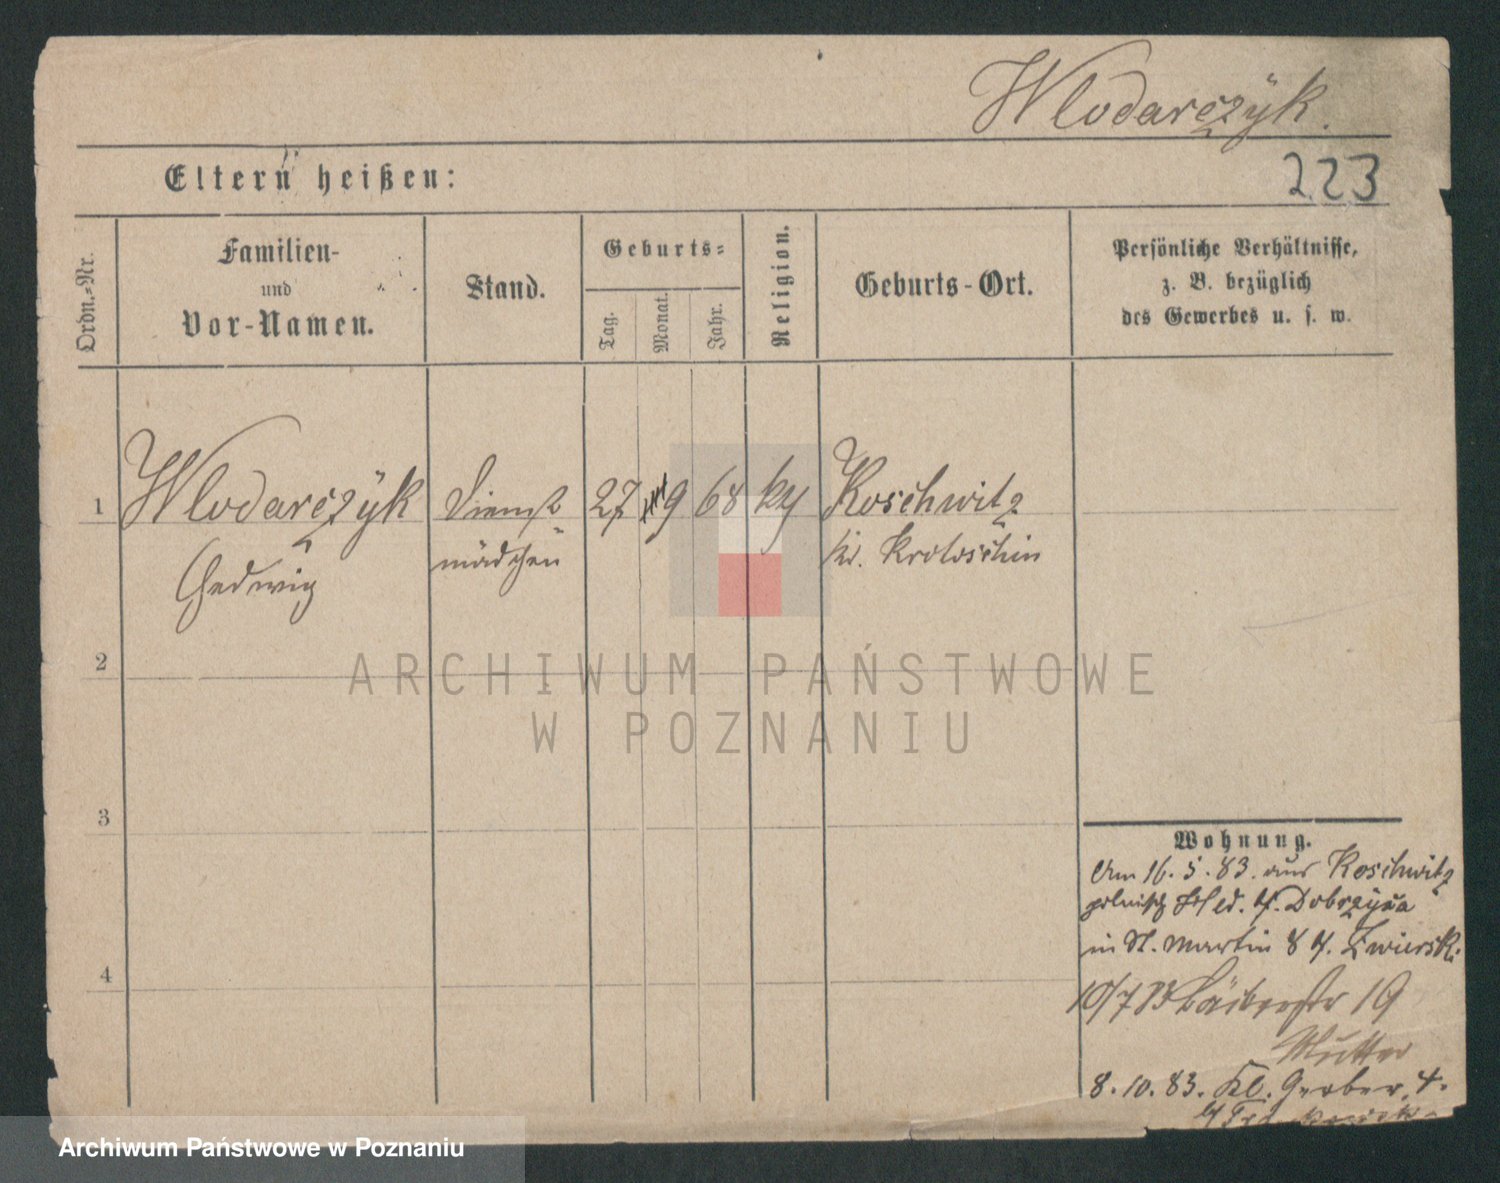 Wlodarczyk.
Eltern heißen:
223
Ordn.-Nr.
Familien-
und
Vor-Namen.
Stand.
Geburts-
Tag.
Monat.
Jahr.
Religion.
Geburts-Ort.
Persönliche Verhältnisse,
z. B. bezüglich
des Gewerbes u. s. w.
1 Wlodarczyk Dienst 27 9 68 kþ Koschwitz
Hedwig mädchen Kr. Krotoschin
2
ARCHIWUM PAŃSTWOWE
W POZNANIU
3
4
Wohnung.
Am 16. 5. 83. aus Koschwitz
in St. Martin 8
10/7 83 19
Mutter
8. 10. 83. Kl. Gerber. 4.
Archiwum Państwowe w Poznaniu